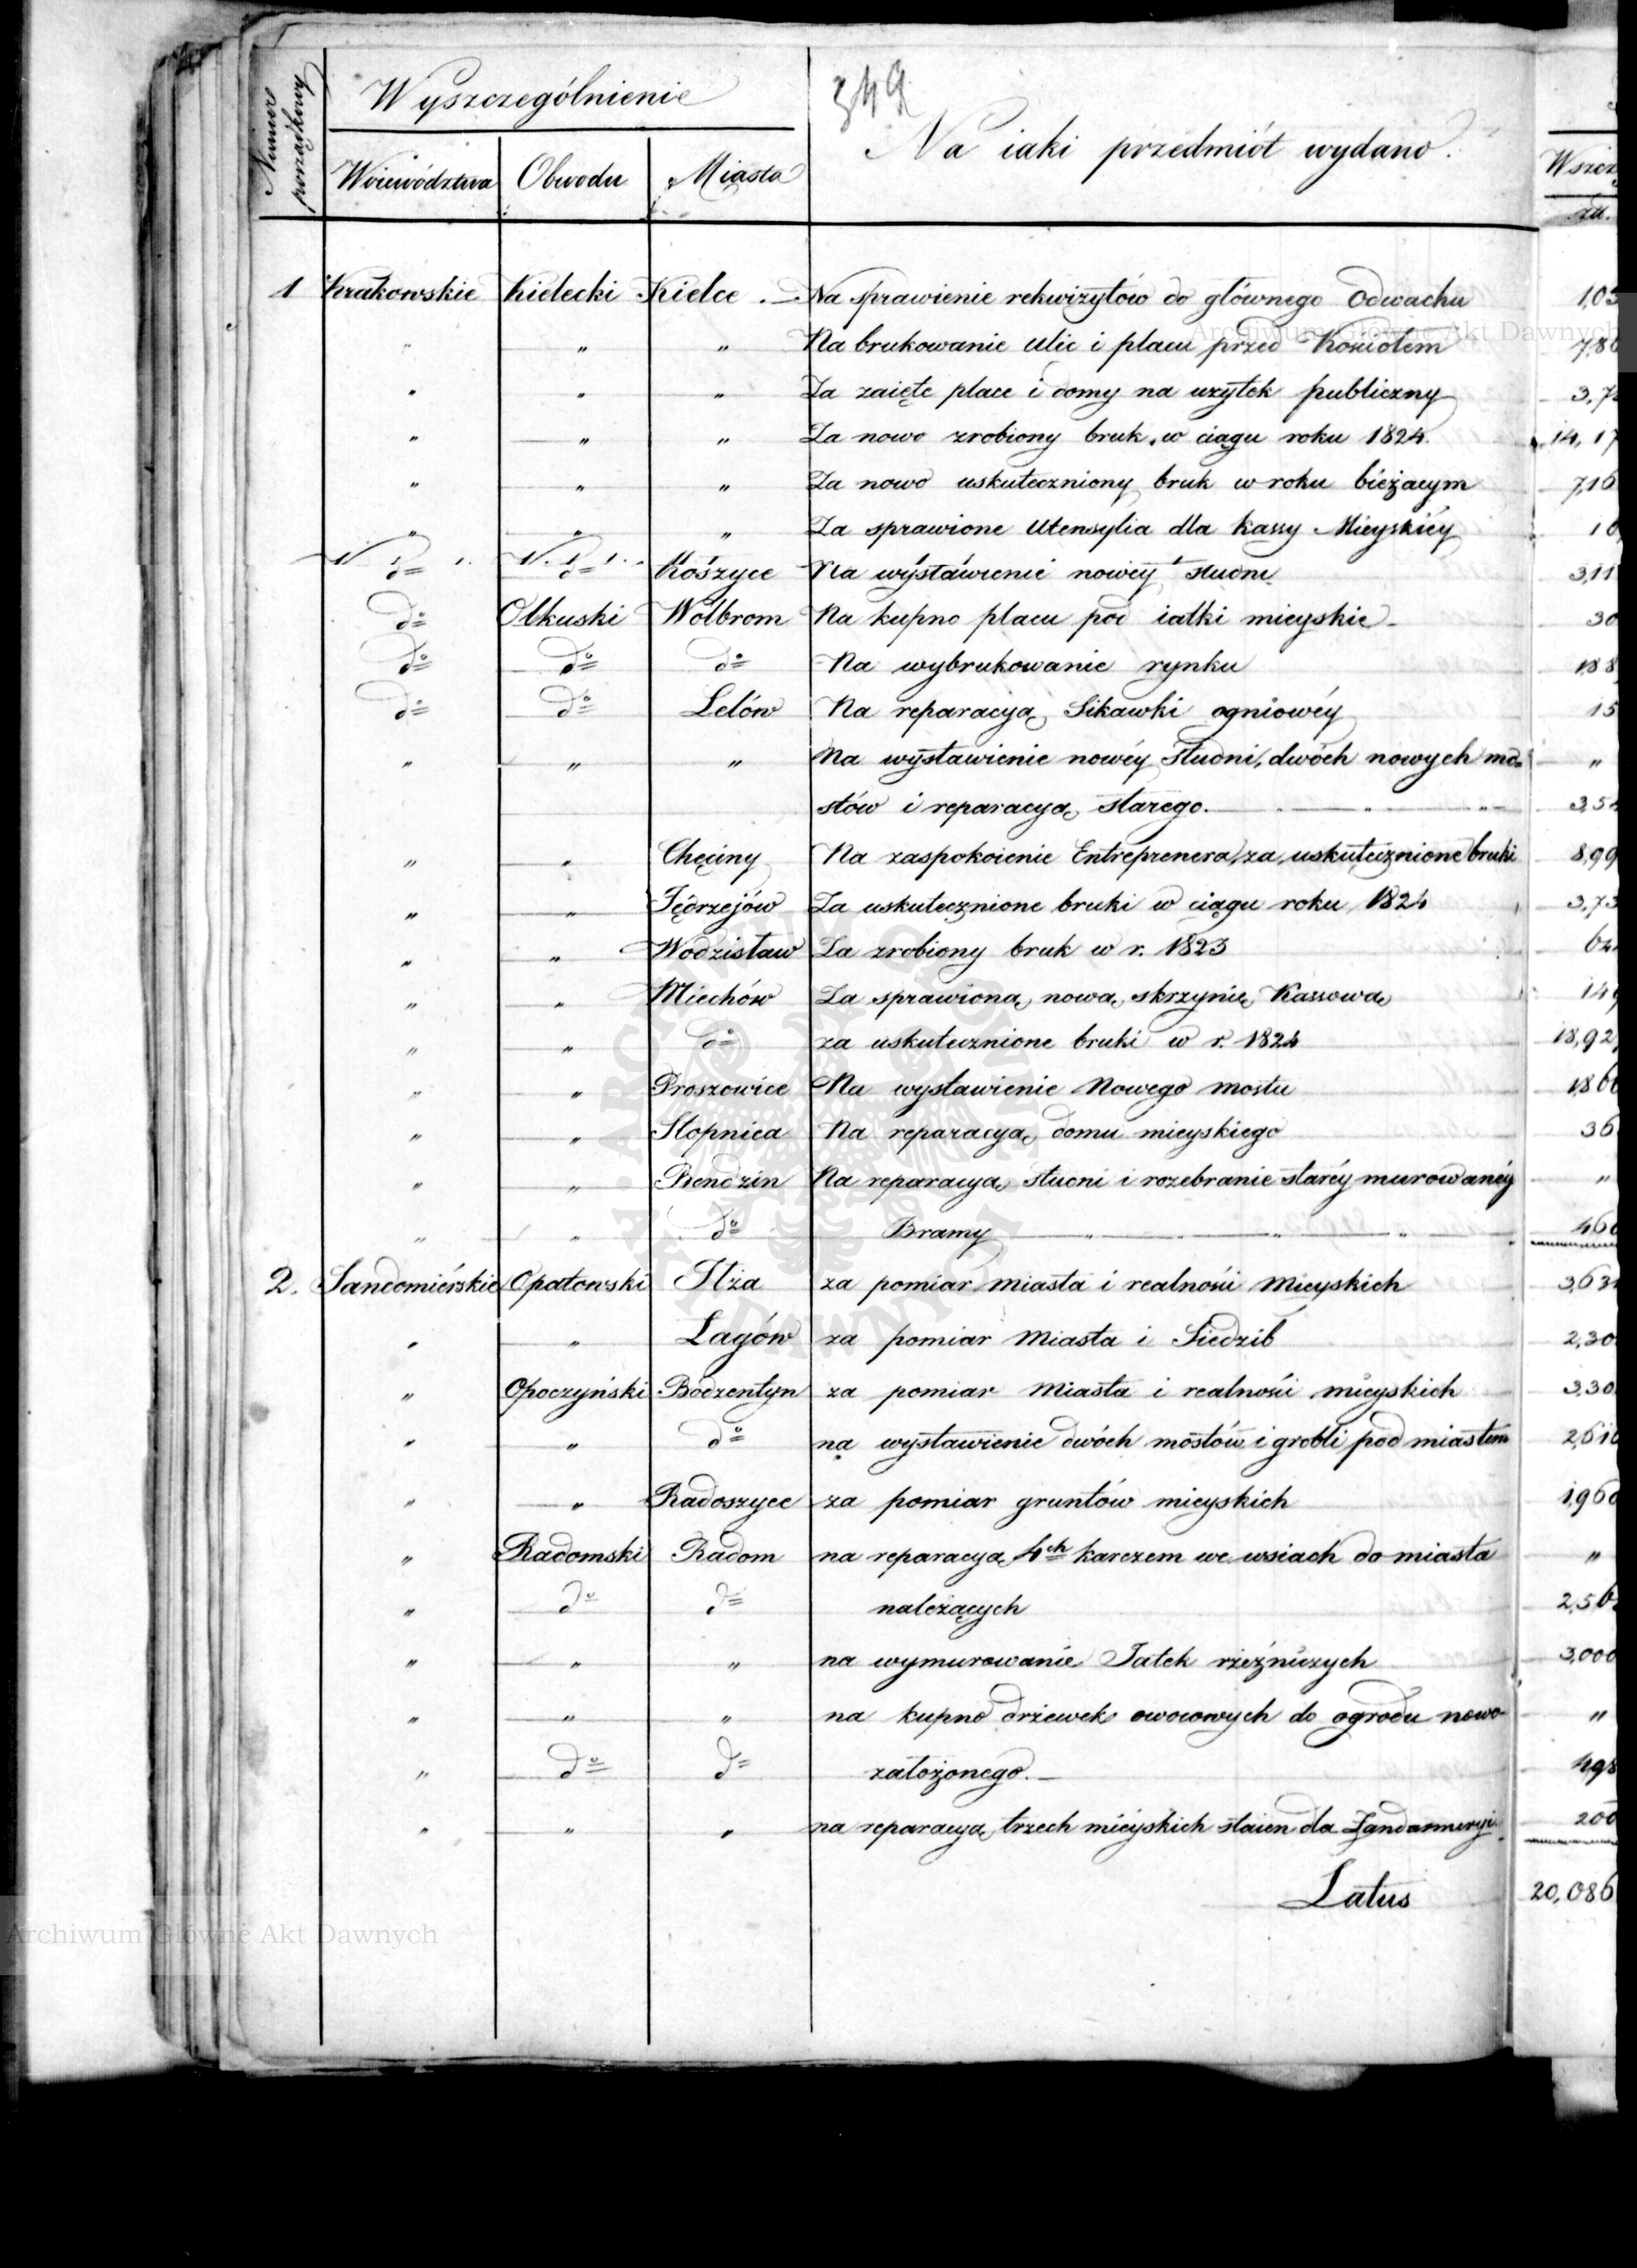 Numer porządkowy
Wyszczególnienie
349
Na iaki przedmiót wydano.
Woiewództwa Obwodu Miasta
zł.
1 Krakowskie Kielecki Kielce . — Na sprawienie rekwizytów do głównego Odwachu
" " " Na brukowanie ulic i placu przed Kościołem
" " " Za zaięte place i domy na uzytek publiczny
" " " Za nowo zrobiony bruk w ciągu roku 1824.
" " " Za nowo uskuteczniony bruk w roku bieżącym
" " " Za sprawione Utensylia dla Kassy Mieyskiéy
do do Koszyce Na wystáwienié nowéy studni
do Olkuski Wolbrom Na kupno placu pod iatki mieyskie - 30
do do do Na wybrukowanie rynku 188
do do Lelów Na reparacyą Sikawki ogniowéy 15
" " " Na wystawienie nowéy studni, dwóch nowych mo= "
stów i reparacyą starego. " "
" " Chęciny Na zaspokoienie Entreprenera, za uskutecznione bruki 8,99
" " Jędrzejów Za uskutecznione bruki w ciągu roku 1824 3,73
" " Wodzisław Za zrobiony bruk w r. 1823
" " Miechów Za sprawioną nową skrzynię Kassową
" " do za uskutecznione bruki w r. 1824 18,92
" " Proszowice Na wystawienie Nowego mostu
" " Stopnica Na reparacyą domu mieyskiego 36
" " Bendzin Na reparacyą studni i rozebranie staréy murowanéy "
" " do Bramy " " " 460
2. Sandomiérskie Opatowski Iłża za pomiar miasta i realności Mieyskich 3,63
" " Łagów za pomiar Miasta i Siedzib 2,30
" Opoczyński Bodzentyn za pomiar Miasta i realności mieyskich 3,30
" " do na wystawienie dwóch mostów i grobli pod miastem 2,610
" " Radoszyce za pomiar gruntów mieyskich 1,960
" Radomski Radom na reparacyą 4ch karczem we wsiach do miasta "
" do do należących 2,56
" " " na wymurowanie Jatek rzeźniczych 3,000
" " " na kupno drzewek owocowych do ogrodu nowo- "
" do do założonego. — 498
" " " na reparacyą trzech mieyskich staien dla Żandarmeryi 200
Latus 20,086
Archiwum Główne Akt Dawnych
Archiwum Główne Akt Dawnych